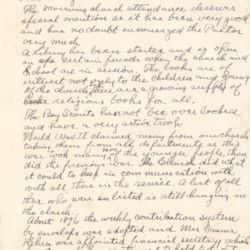 The morning church attendance deserves
special mention as it has been very good
and has no doubt encouraged the Pastor
very much.
A library has been started and is open
at certain periods when the church and
School are in session. The books are of
interest not only to the children and Young
of the church, there are a growing supply of
religious books for all.
The Boy Scouts cannot bee over looked
and have a very active troop.
World War II claimed many from our church
taking them from all departments as this
war was making the younger people than
did the previous war. The Church did what
it could to keep in communication with
with all those in the service. A list of all
that who were enlisted is still hanging in
the church.
About 1896 the weekly contribution system
by envelops was adopted and Mrs Emma
was appointed financial secretary